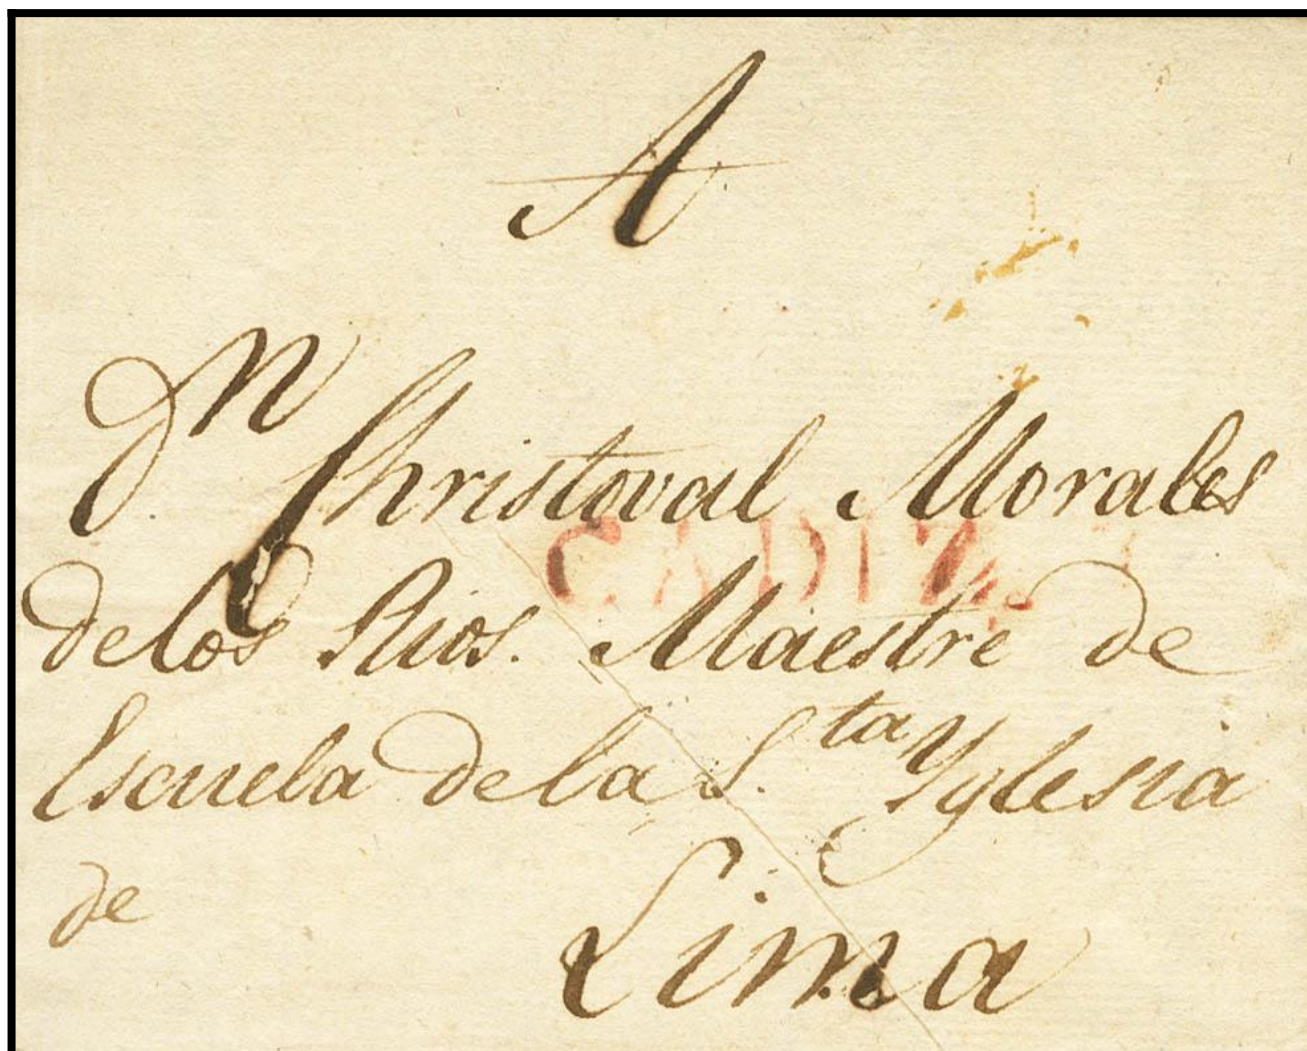 A
Dn. Christoval Morales
CADIZ
delos Rios. Maestre de
Escuela dela S.ta Yglesia
de
Lima